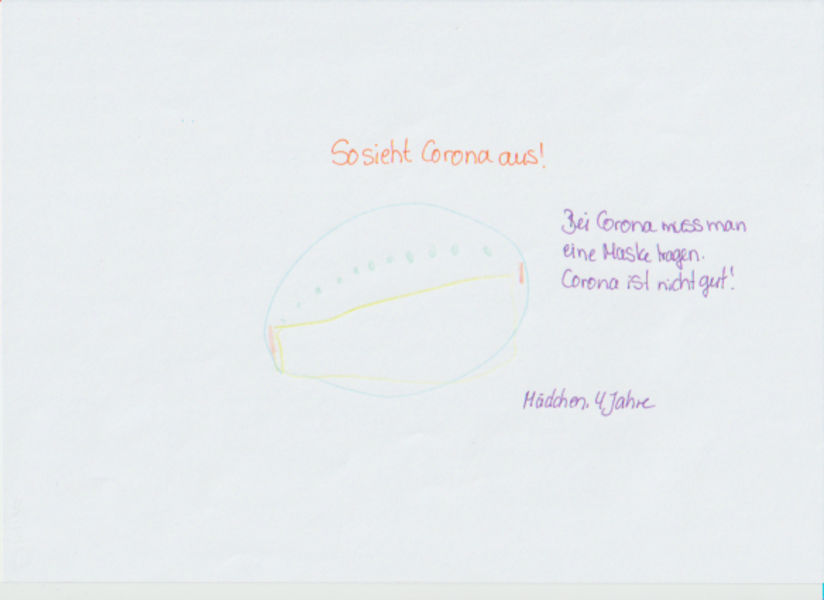 So sieht Corona aus!
Bei Corona muss man
eine Maske tragen.
Corona ist nicht gut!
Mädchen, 4 Jahre